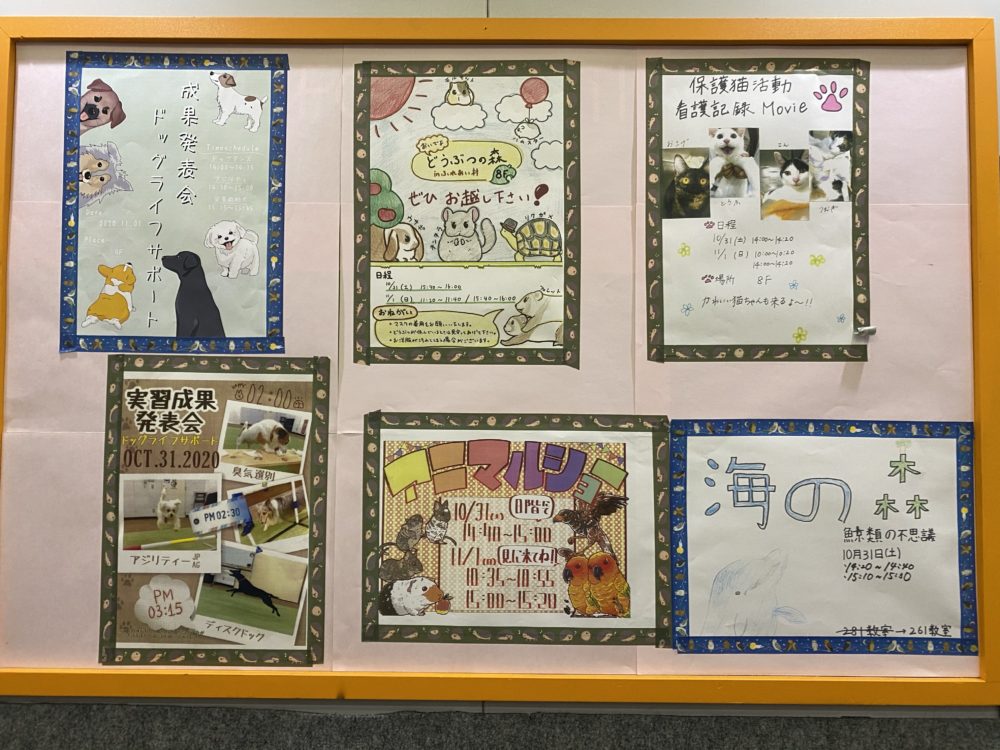 成果発表会
ドッグライフサポート
Timeschedule
Date
2020.11.01
Place
8F
おいでよ
どうぶつの森
inふれあい村
8F
ぜひ お越し下さい!
ウサギ
チンチラ
リクガメ
日程
10/31(土) 15:40~16:00
11/1(日) 11:20~11:40 / 15:40~16:00
おねがい
・マスクの着用をお願いいたします。
保護猫活動
看護記録 Movie
とうふ
こん
日程
10/31(土) 14:00~14:20
11/1(日) 10:00~10:20
14:00~14:20
場所 8F
かわいい猫ちゃんも来るよ~!!
実習成果
発表会
ドッグライフサポート
OCT.31.2020
02:00
臭気選別
PM 02:30
アジリティー
PM
03:15
ディスクドッグ
アニマルショー
10/31(土)
14:40~15:00
11/1(日)
見に来てね!!
10:35~10:55
15:00~15:20
海の森
鯨類の不思議
10月31日(土)
・14:20~14:40
・15:10~15:30
281教室→261教室